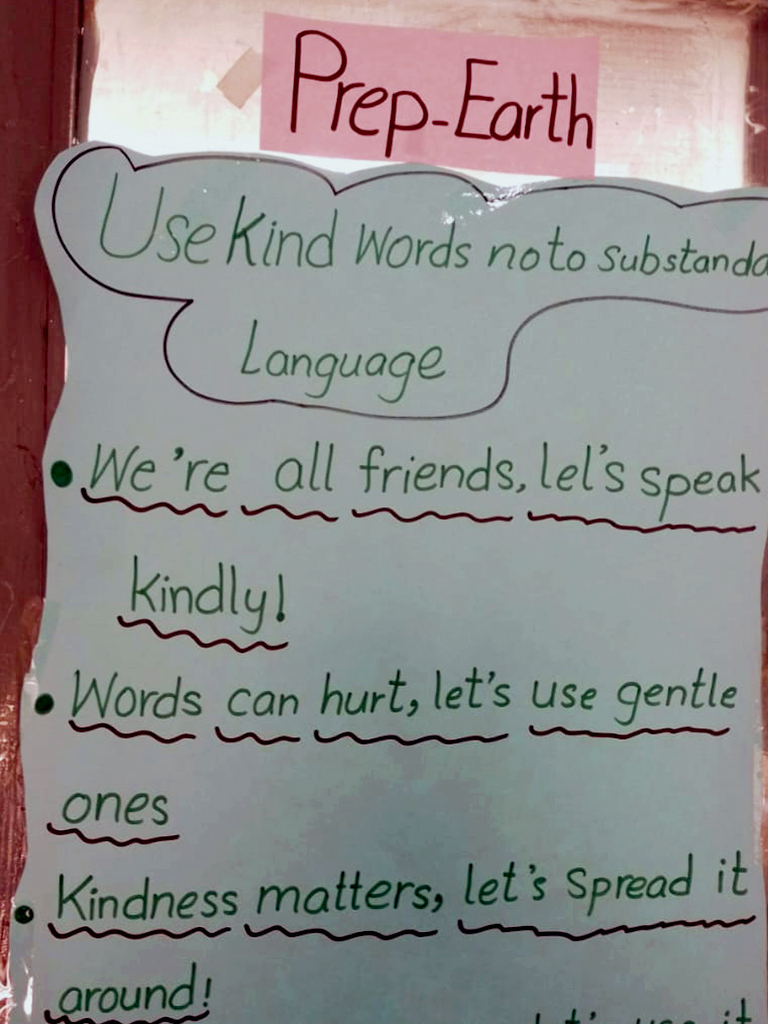 Prep-Earth
Use Kind Words no to substanda
Language
• We're all friends, lel's speak
kindly!
• Words can hurt, let's use gentle
ones
• Kindness matters, let's Spread it
around!
let's use it